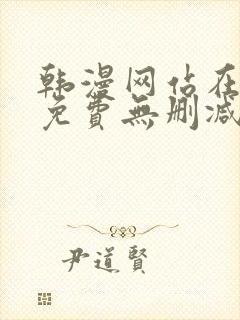 韩漫网站在
免費無删减
尹道賢